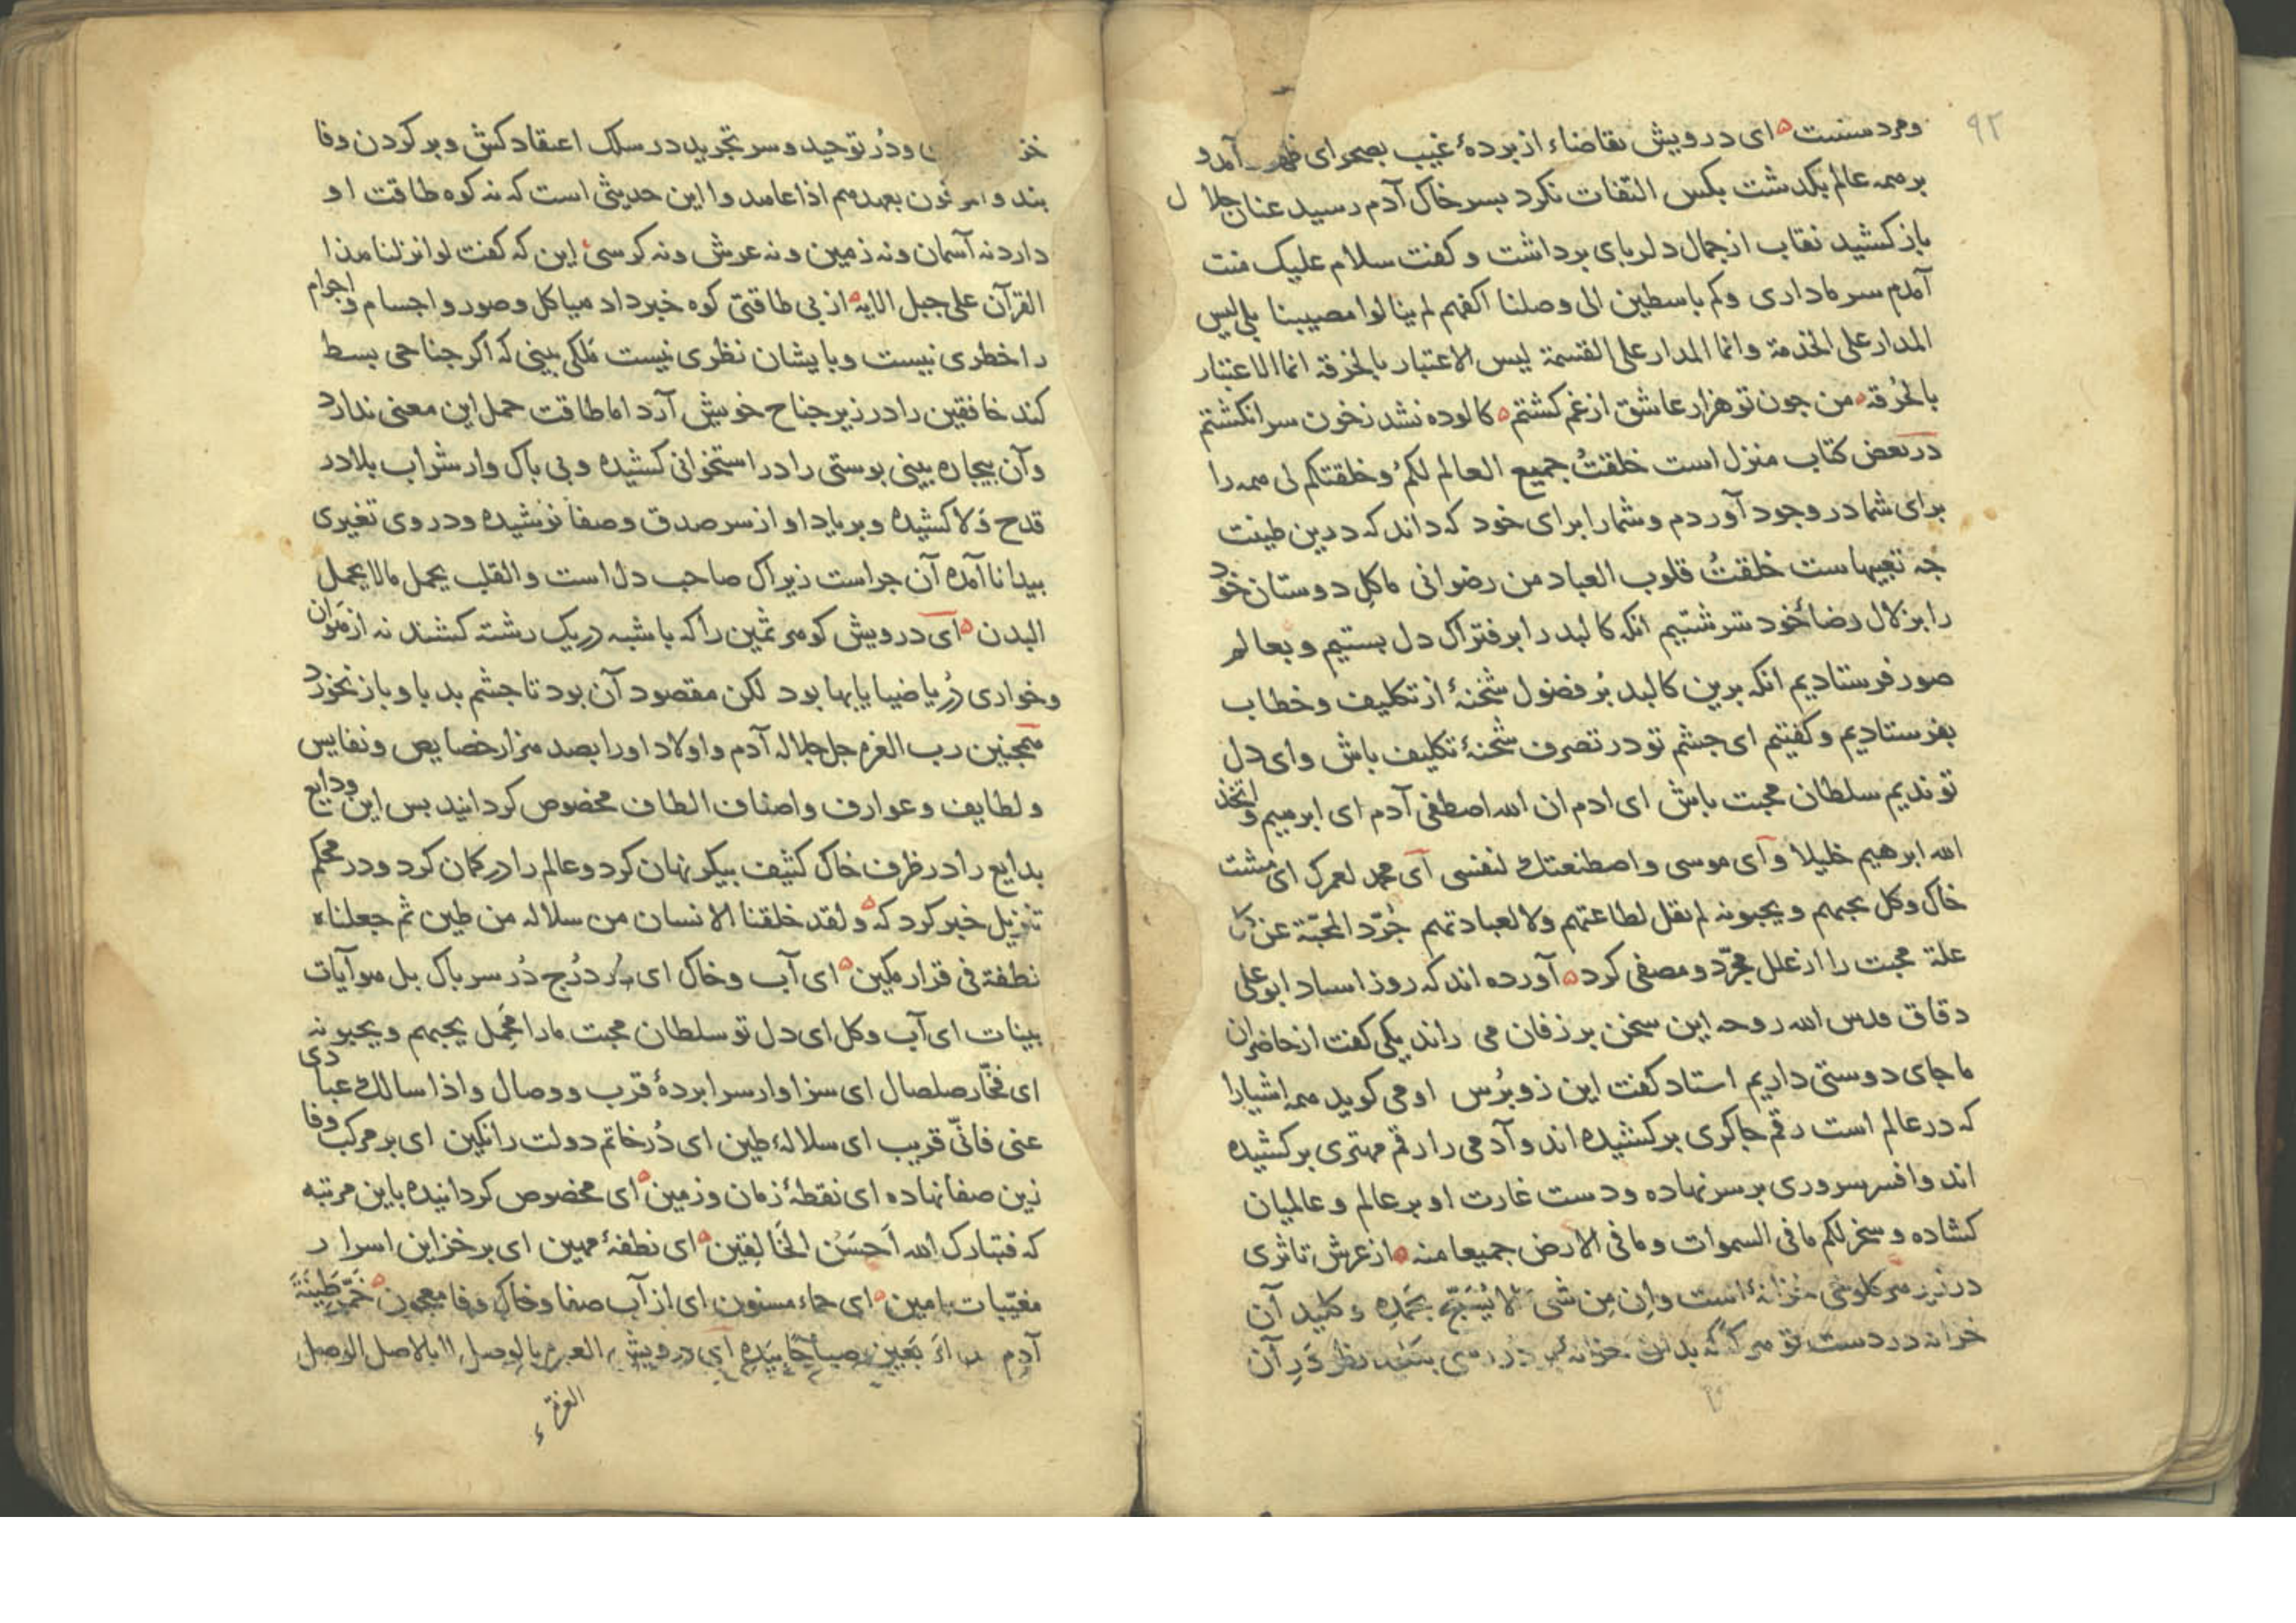 ۹۲
ومرد مست ای درویش تقاضاء از بردهٔ غیب بصحرای ظهور آمد و
بر همه عالم بکدشت بکس التفات نکرد بسر خاک آدم رسید عنان جلال
باز کشید نقاب از جمال دلربای برداشت و کفت سلام علیک منت
آمدم سر ما داری وکم باسطین الی وصلنا اکفهم لم ینالوا مصیبنا بلی لیس
المدار علی الخدمة وانما المدار علی القسمة لیس الاعتبار بالخرقه انما الاعتبار
بالحُرقه من جون تو هزار عاشق از غم کشتم کالوده نشد زخون سر انکشتم
در بعض کتاب منزل است خلقتُ جمیع العالم لکم وخلقتکم لی همه را
برای شما در وجود آوردم و شما را برای خود که داند که درین طینت
جه تعبیهاست خلقتُ قلوب العباد من رضوانی ما کل دوستان خود
را بزلال رضاءخود سرشتیم انکه کالبد را بر فتراک دل بستیم و بعالم
صور فرستادیم انکه برین کالبد بُر فضول شحنهٔ از تکلیف و خطاب
بفرستادیم و کفتیم ای جشم تو در تصرف شحنهٔ تکلیف باش وای دل
تو ندیم سلطان محبت باش ای ادم ان الله اصطفی آدم ای ابرهیم واتخذ
الله ابرهیم خلیلا وآی موسی واصطنعتک لنفسی آی محمد لعمرک ای مشت
خاک وکل یحبهم و یحبونه لم یقل لطاعتهم ولا لعبادتهم جُرّد المحبّة عن کل
علة محبت را از علل مجرّد و مصفی کرد آورده اند که روز استاد ابو علی
دقاق قدس الله روحه این سخن بر زفان می راند یکی کفت از حاضران
ما جای دوستی داریم استاد کفت این زو بُرس او می کوید همه اشیا را
که در عالم است رقم جاکری بر کشیده اند وآدمی را رقم مهتری بر کشیده
اند وافسر سروری بر سر نهاده ودست غارت او بر عالم و عالمیان
کشاده و سخر لکم ما فی السموات وما فی الارض جمیعا منه از عرش تا ثری
در زیر هر کلوخی خزانهٔ است وان من شی الا یُسَبّح بحمده و کلید آن
خزانه در دست تو هر که بدین خزانه نظر دَر آن
ودُر توحید وسر تجرید در سلک اعتقاد کش وبر کردن وفا
بند والموفون بعهدهم اذا عاهدوا این حدیثی است که نه کوه طاقت او
دارد نه آسمان ونه زمین ونه عرش ونه کرسی این که کفت لو انزلنا هذا
القرآن علی جبل الایه از بی طاقتی کوه خبر داد هیاکل وصور واجسام واجرام
را خطری نیست وبایشان نظری نیست مَلکی بینی که اکر جناحی بسط
کند خافقین را در زیر جناح خویش آرد اما طاقت حمل این معنی ندارد
وآن بیجاره بینی بوستی را در استخوانی کشیده وبی باک وار شراب بلا در
قدح وَلا کشیده وبر یاد او از سر صدق وصفا نوشیده ودر وی تغیری
بیدا نا آمده آن جراست زیراک صاحب دل است والقلب یحمل ما لا یحمل
البدن ای درویش کوهر ثمین را که با شبه در یک رشته کشند نه از هوان
وخواری دُر یا ضیا یا بها بود لکن مقصود آن بود تا جشم بد باو باز نخورد
همجنین رب العزه جل جلاله آدم واولاد اورا بصد هزار خصایص ونفایس
ولطایف وعوارف واصناف الطاف مخصوص کردانید بس این ودایع
بدایع را در ظرف خاک کثیف بیکر نهان کرد وعالم را در کمان کرد ودر محکم
تنزیل خبر کرد که ولقد خلقنا الانسان من سلاله من طین ثم جعلناه
نطفة فی قرار مکین ای آب وخاک ای دُرج دُر سر باک بل هو آیات
بینات ای آب وکل ای دل تو سلطان محبت ما را محمل یحبهم ویحبونه
ای فخّار صلصال ای سزاوار سرابردهٔ قرب ووصال واذا سالک عبادی
عنی فانّی قریب ای سلالهٔ طین ای دُر خاتم دولت را نکین ای بر مرکب وفا
زین صفا نهاده ای نقطهٔ زمان وزمین ای مخصوص کردانیده باین مرتبه
که فتبارک الله اَحسَنُ الخَالِقین ای نطفهٔ مهین ای بر خزاین اسرار
مغیّبات بامین ای حماء مسنون ای از آب صفا وخاک وفا معجون خَمّرَ طِینَةَ
آدم اَربَعین صباحًا بیَدِه آی درویش العبره بالوصل لا بالاصل الوصل
القربة